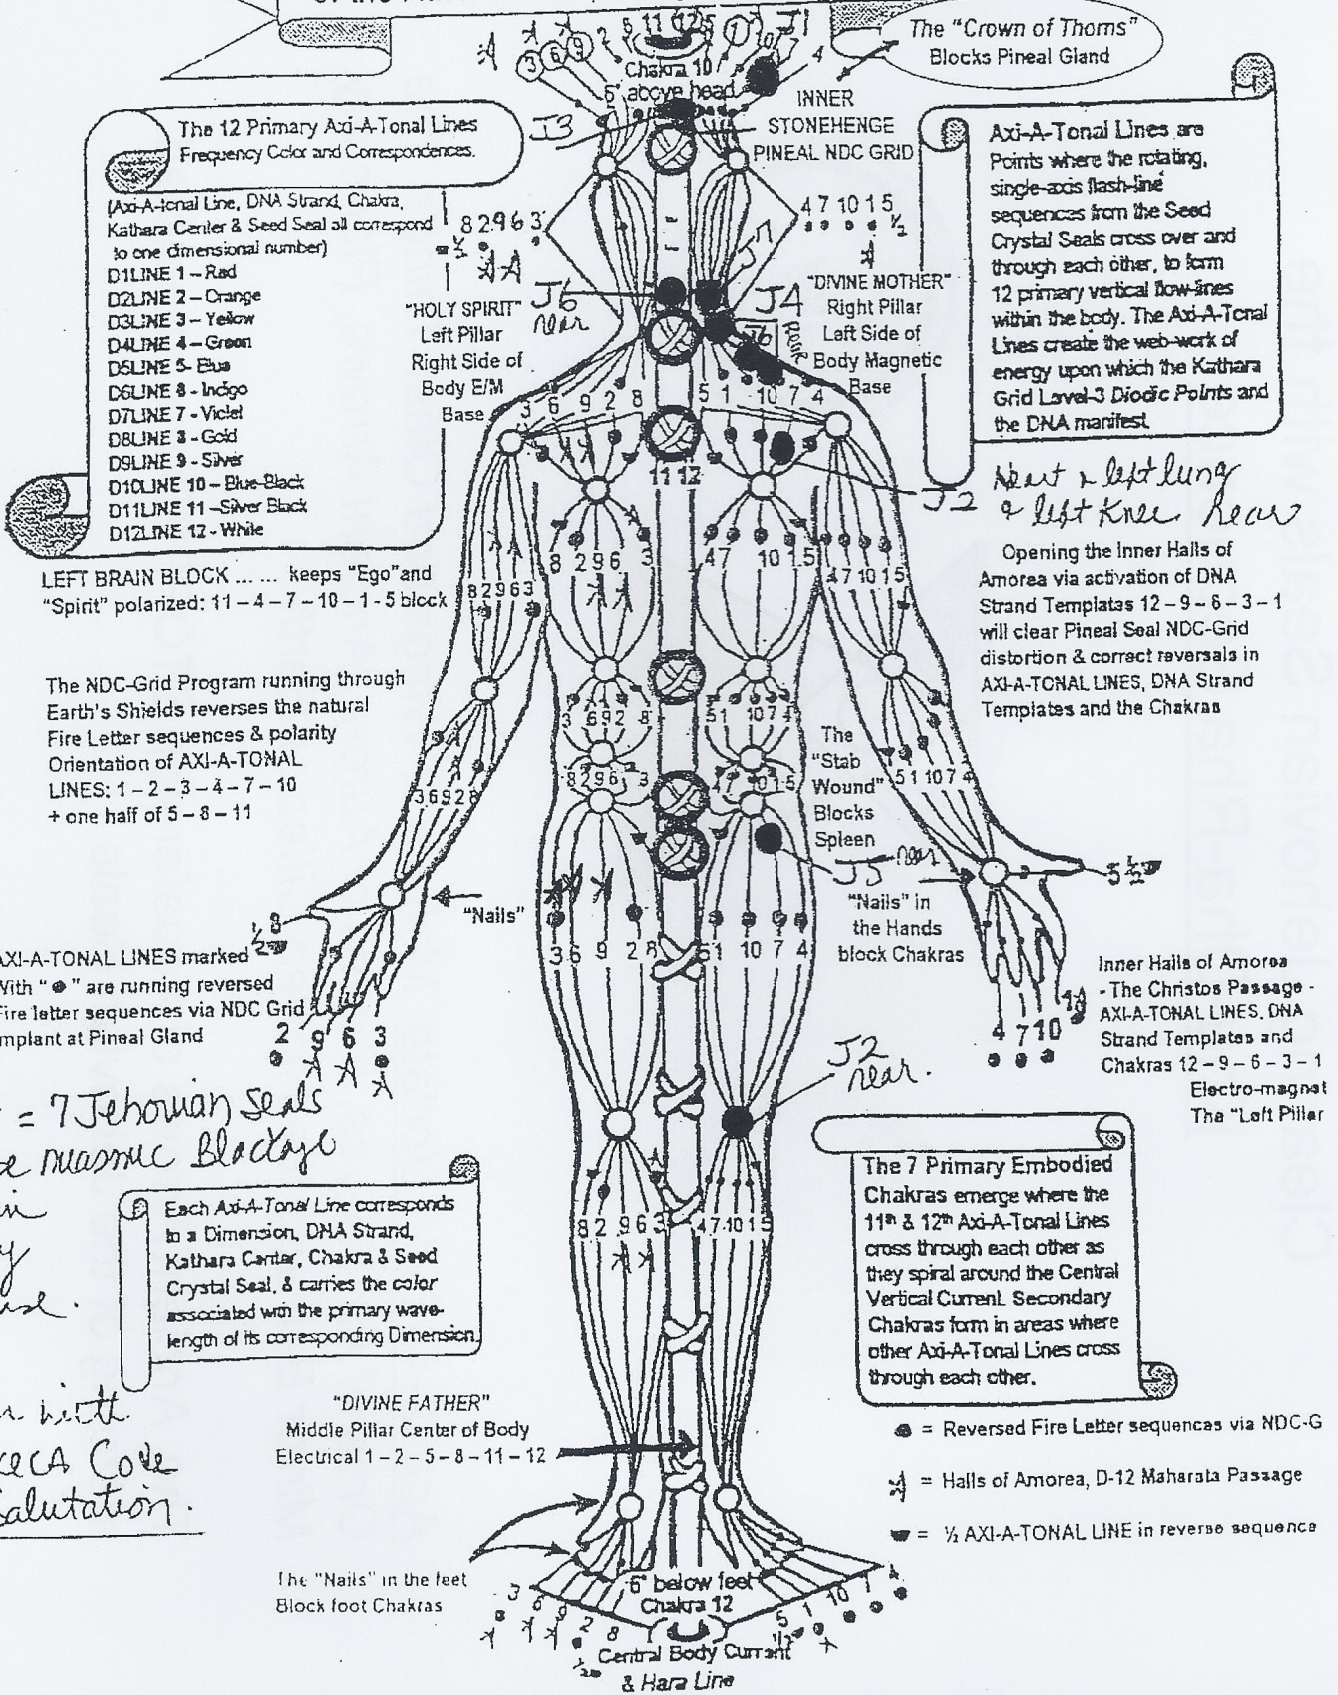 The "Crown of Thorns"
Blocks Pineal Gland
Chakra 10
6" above head
INNER
STONEHENGE
PINEAL NDC GRID
J1
J3
The 12 Primary Axi-A-Tonal Lines
Frequency Color and Correspondences.
(Axi-A-tonal Line, DNA Strand, Chakra,
Kathara Center & Seed Seal all correspond
to one dimensional number)
D1LINE 1 – Red
D2LINE 2 – Orange
D3LINE 3 – Yellow
D4LINE 4 – Green
D5LINE 5- Blue
D6LINE 6 - Indigo
D7LINE 7 - Violet
D8LINE 8 - Gold
D9LINE 9 - Silver
D10LINE 10 – Blue-Black
D11LINE 11 –Silver Black
D12LINE 12 - White
Axi-A-Tonal Lines are
Points where the rotating,
single-axis flash-line
sequences from the Seed
Crystal Seals cross over and
through each other, to form
12 primary vertical flow-lines
within the body. The Axi-A-Tonal
Lines create the web-work of
energy upon which the Kathara
Grid Level-3 Diodic Points and
the DNA manifest.
8 2 9 6 3
4 7 10 1 5 ½
"HOLY SPIRIT"
Left Pillar
Right Side of
Body E/M
Base
J6
near
J7
J4
"DIVINE MOTHER"
Right Pillar
Left Side of
Body Magnetic
Base
3 6 9 2 8
5 1 10 7 4
11 12
J2
Heart & left lung
& left knee near
LEFT BRAIN BLOCK ... ... keeps "Ego"and
"Spirit" polarized: 11 – 4 – 7 – 10 – 1 - 5 block
8 2 9 6 3
8 2 9 6 3
4 7 10 1 5
4 7 10 1 5
Opening the Inner Halls of
Amorea via activation of DNA
Strand Templatas 12 – 9 – 6 – 3 – 1
will clear Pineal Seal NDC-Grid
distortion & correct reversals in
AXI-A-TONAL LINES, DNA Strand
Templates and the Chakras
The NDC-Grid Program running through
Earth's Shields reverses the natural
Fire Letter sequences & polarity
Orientation of AXI-A-TONAL
LINES: 1 – 2 – 3 – 4 – 7 – 10
+ one half of 5 – 8 – 11
3 6 9 2 8
5 1 10 7 4
8 2 9 6 3
4 7 10 1 5
3 6 9 2 8
5 1 10 7 4
The
"Stab
Wound"
Blocks
Spleen
J5 near
"Nails"
"Nails" in
the Hands
block Chakras
5 ½
½ 8
3 6 9 2 8
5 1 10 7 4
AXI-A-TONAL LINES marked
With " " are running reversed
Fire letter sequences via NDC Grid
Implant at Pineal Gland
2 9 6 3
4 7 10 1
Inner Halls of Amorea
- The Christos Passage -
AXI-A-TONAL LINES, DNA
Strand Templates and
Chakras 12 – 9 – 6 – 3 – 1
Electro-magnet
The "Left Pillar
J2
near.
= 7 Jehovian Seals
miasmic Blockage
in
Each Axi-A-Tonal Line corresponds
to a Dimension, DNA Strand,
Kathara Center, Chakra & Seed
Crystal Seal, & carries the color
associated with the primary wave-
length of its corresponding Dimension.
8 2 9 6 3
4 7 10 1 5
The 7 Primary Embodied
Chakras emerge where the
11th & 12th Axi-A-Tonal Lines
cross through each other as
they spiral around the Central
Vertical Current. Secondary
Chakras form in areas where
other Axi-A-Tonal Lines cross
through each other.
with
Code
Salutation.
"DIVINE FATHER"
Middle Pillar Center of Body
Electrical 1 – 2 – 5 – 8 – 11 – 12
= Reversed Fire Letter sequences via NDC-G
= Halls of Amorea, D-12 Maharata Passage
= ½ AXI-A-TONAL LINE in reverse sequence
The "Nails" in the feet
Block foot Chakras
6" below feet
Chakra 12
3 6 9 2 8
5 1 10 1 4
Central Body Current
& Hara Line